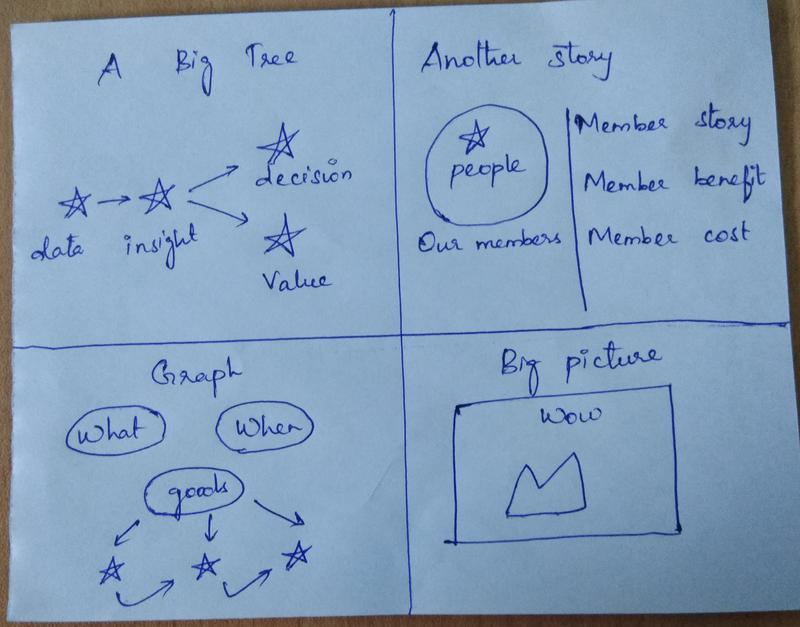 A Big Tree
decision
data insight
Value
Another story
people
Our members
Member story
Member benefit
Member cost
Graph
What
When
goods
Big picture
Wow